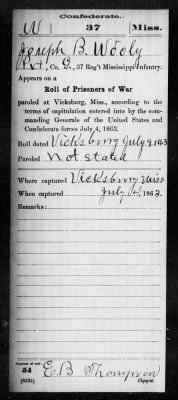 Confederate.
W 37 Miss.
Joseph B. Wooly
Pvt, Co. G, 37 Reg't Mississippi Infantry.
Appears on a
Roll of Prisoners of War
paroled at Vicksburg, Miss., according to the
terms of capitulation entered into by the com-
manding Generals of the United States and
Confederate forces July 4, 1863.
Roll dated Vicksburg July 9 1863
Paroled Not stated
Where captured Vicksburg Miss
When captured July 4, 1863.
Remarks:
Number of roll:
54 E. B. Thompson
Copyist.